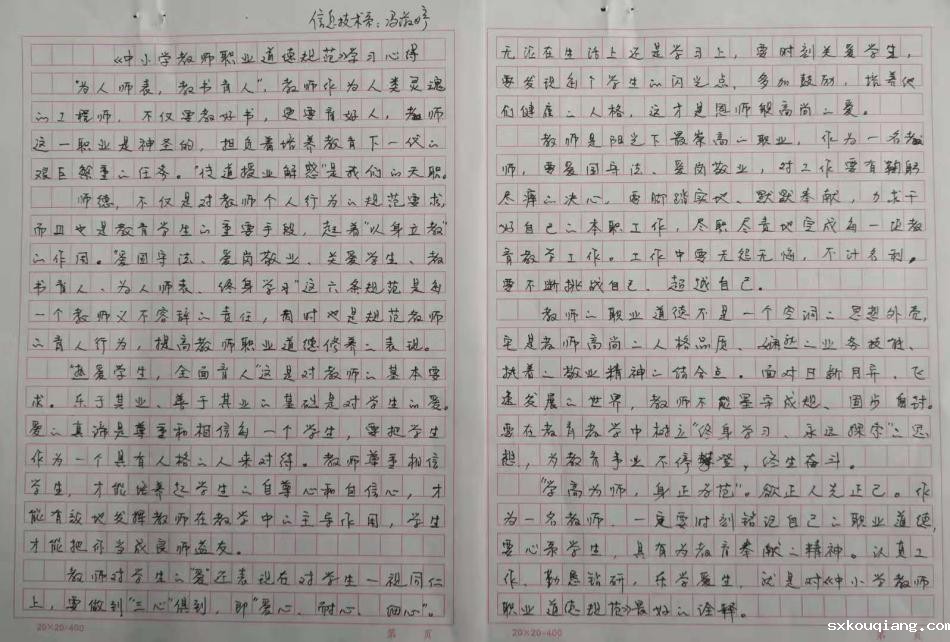 信息技术系：冯
《中小学教师职业道德规范》学习心得
"为人师表，教书育人"，教师作为人类灵魂
的工程师，不仅要教好书，更要育好人，教师
这一职业是神圣的，担负着培养教育下一代的
艰巨繁重的任务。"传道授业解惑"是我们的天职。
师德，不仅是对教师个人行为的规范要求，
而且也是教育学生的重要手段，起着"以身立教"
的作用。"爱国守法、爱岗敬业、关爱学生、教
书育人、为人师表、终身学习"这六条规范是每
一个教师义不容辞的责任，同时也是规范教师
的育人行为，提高教师职业道德修养的表现。
"热爱学生，全面育人"这是对教师的基本要
求。乐于其业、善于其业的基础是对学生的爱。
爱的真谛是尊重和相信每一个学生，要把学生
作为一个具有人格的人来对待。教师尊重相信
学生，才能培养起学生的自尊心和自信心，才
能有效地发挥教师在教学中的主导作用，学生
才能把你当成良师益友。
教师对学生的"爱"还表现在对学生一视同仁
上，要做到"三心"俱到，即"爱心、耐心、细心"。
20×20=400
第 页
无论在生活上还是学习上，要时刻关爱学生，
要发现每个学生的闪光点，多加鼓励，培养他
们健康的人格，这才是恩师般高尚的爱。
教师是阳光下最崇高的职业，作为一名教
师，要爱国守法、爱岗敬业，对工作要有鞠躬
尽瘁的决心，要脚踏实地、默默奉献，力求干
好自己的本职工作，尽职尽责地完成每一项教
育教学工作。工作中要无怨无悔，不计名利。
要不断挑战自己、超越自己。
教师的职业道德不是一个空洞的思想外壳，
它是教师高尚的人格品质、娴熟的业务技能、
执着的敬业精神的结合点。面对日新月异、飞
速发展的世界，教师不能墨守成规、固步自封。
要在教育教学中树立"终身学习、永远探索"的思
想，为教育事业不停攀登，终生奋斗。
"学高为师，身正为范"。欲正人先正己。作
为一名教师，一定要时刻铭记自己的职业道德，
要心系学生，具有为教育奉献的精神。认真工
作、勤恳钻研，乐学爱生，就是对《中小学教师
职业道德规范》最好的诠释。
20×20=400
第 页
sxkouqiang.com